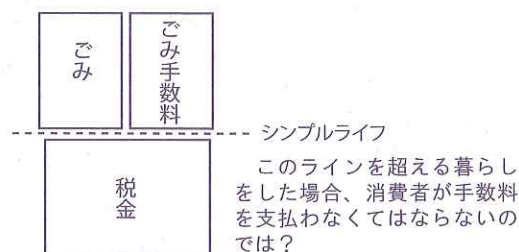 ごみ
ごみ手数料
シンプルライフ
税金
このラインを超える暮らし
をした場合、消費者が手数料
を支払わなくてはならないの
では？